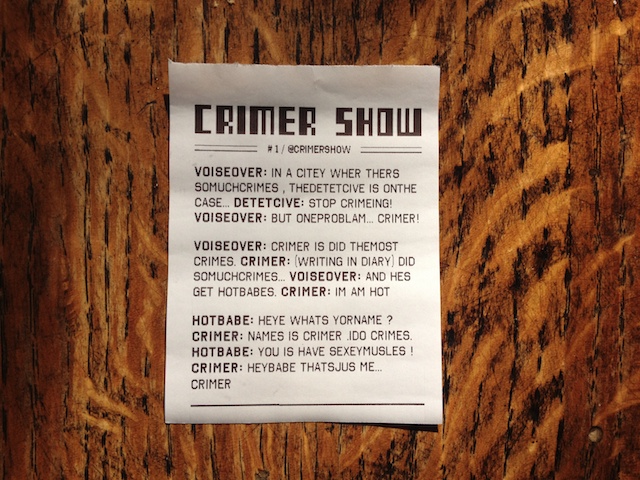 CRIMER SHOW
#1/@CRIMERSHOW
VOISEOVER: IN A CITEY WHER THERS
SOMUCHCRIMES , THEDETETCIVE IS ONTHE
CASE... DETETCIVE: STOP CRIMEING!
VOISEOVER: BUT ONEPROBLAM... CRIMER!
VOISEOVER: CRIMER IS DID THEMOST
CRIMES. CRIMER: (WRITING IN DIARY) DID
SOMUCHCRIMES... VOISEOVER: AND HES
GET HOTBABES. CRIMER: IM AM HOT
HOTBABE: HEYE WHATS YORNAME ?
CRIMER: NAMES IS CRIMER .IDO CRIMES.
HOTBABE: YOU IS HAVE SEXEYMUSLES !
CRIMER: HEYBABE THATSJUS ME...
CRIMER